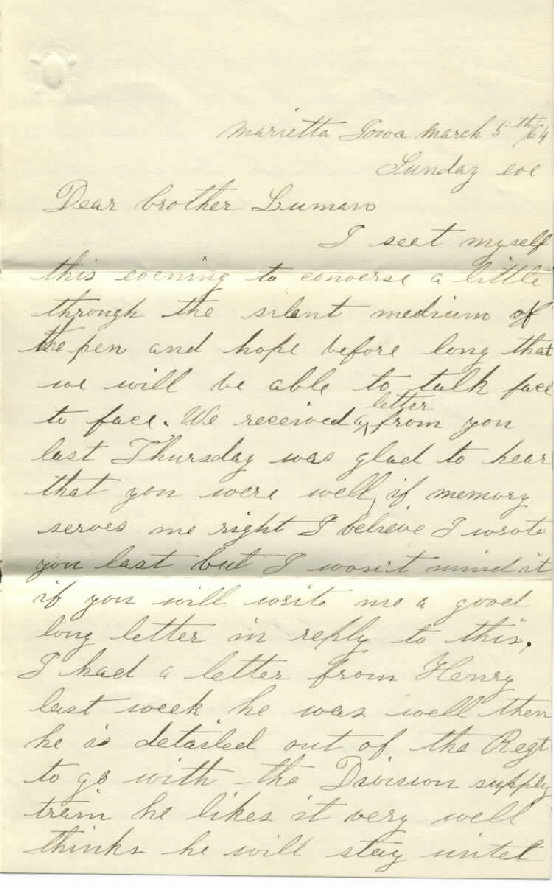 Marietta Iowa March 5th/64
Sunday eve
Dear brother Luman
I seat myself
this evening to converse a little
through the silent medium of
the pen and hope before long that
we will be able to talk face
to face. We received a letter from you
last Thursday was glad to hear
that you were well, if memory
serves me right I believe I wrote
you last but I won't mind it
if you will write me a good
long letter in reply to this.
I had a letter from Henry
last week he was well then
he is detailed out of the Regt
to go with the Division supply
train he likes it very well
thinks he will stay until